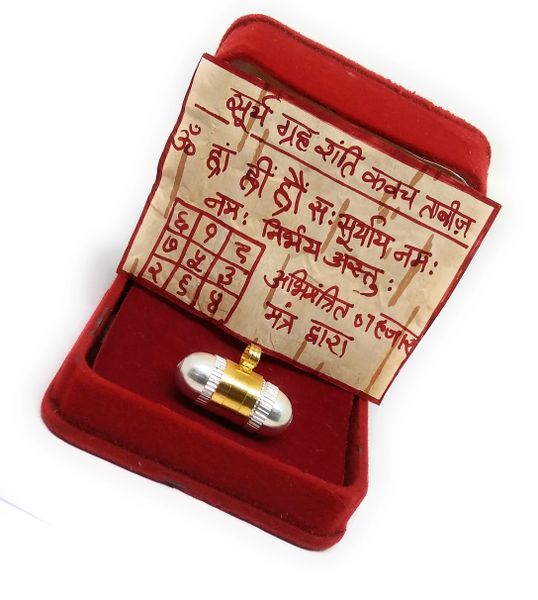 सूर्य ग्रह शंति कवच ताबीज़
ॐ ह्रां ह्रीं ह्रौं सः सूर्याय नमः
नमः निर्भय अस्तु :
६ १
७ ५ ३
२ ४
अभिमंत्रित ०१ हजार
मंत्र द्वारा